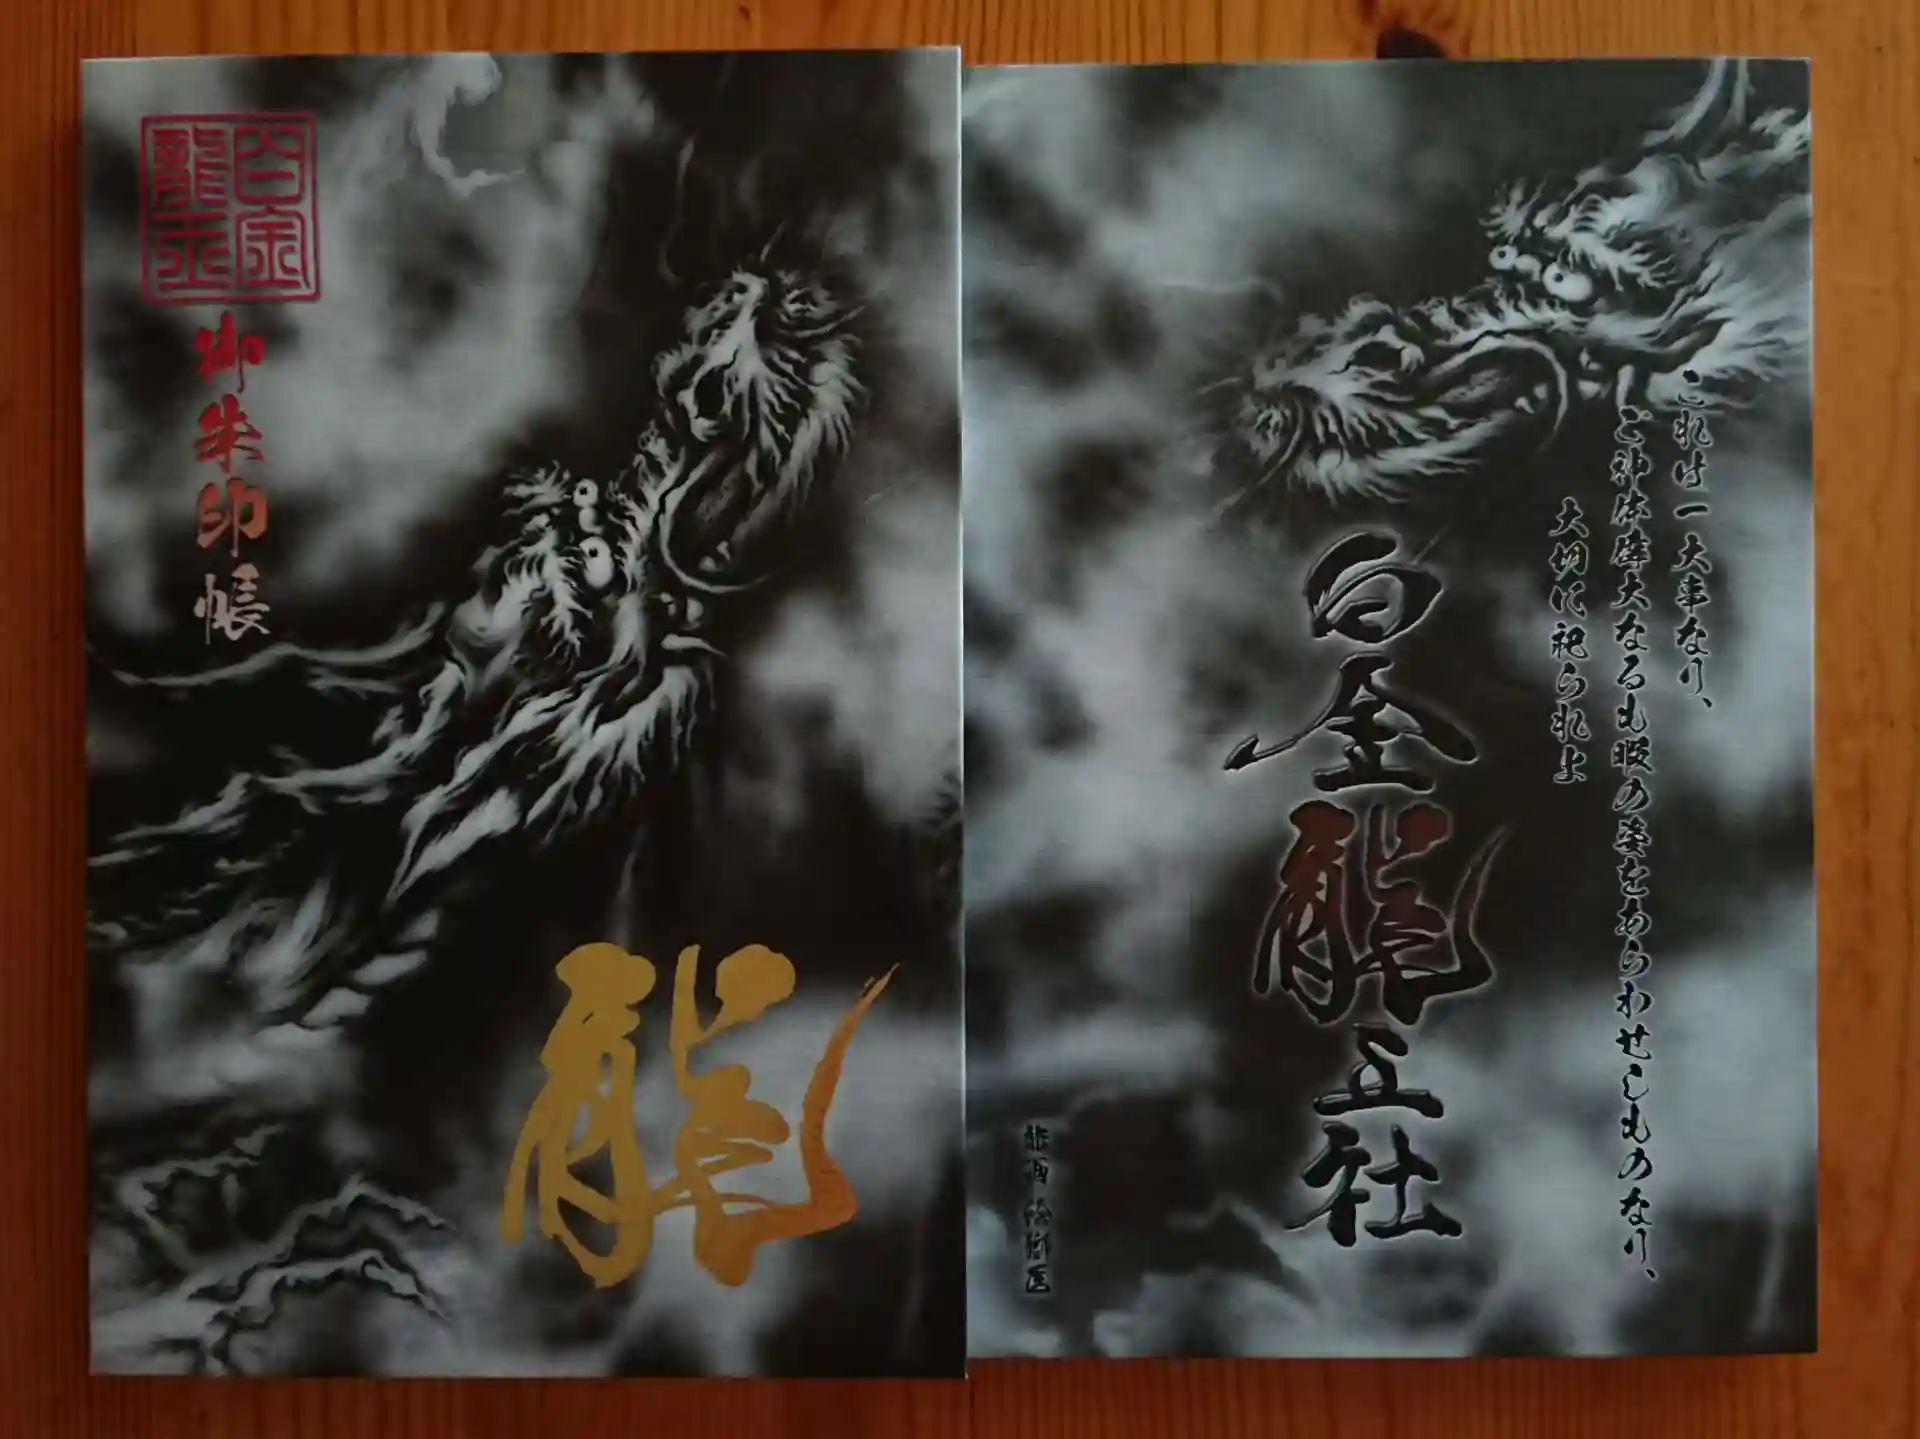 白金
龍王
御朱印帳
龍
これは一大事なり、
ご神体偉大なるも暇の姿をあらわせしものなり、
大切に祀られよ
白金龍王社